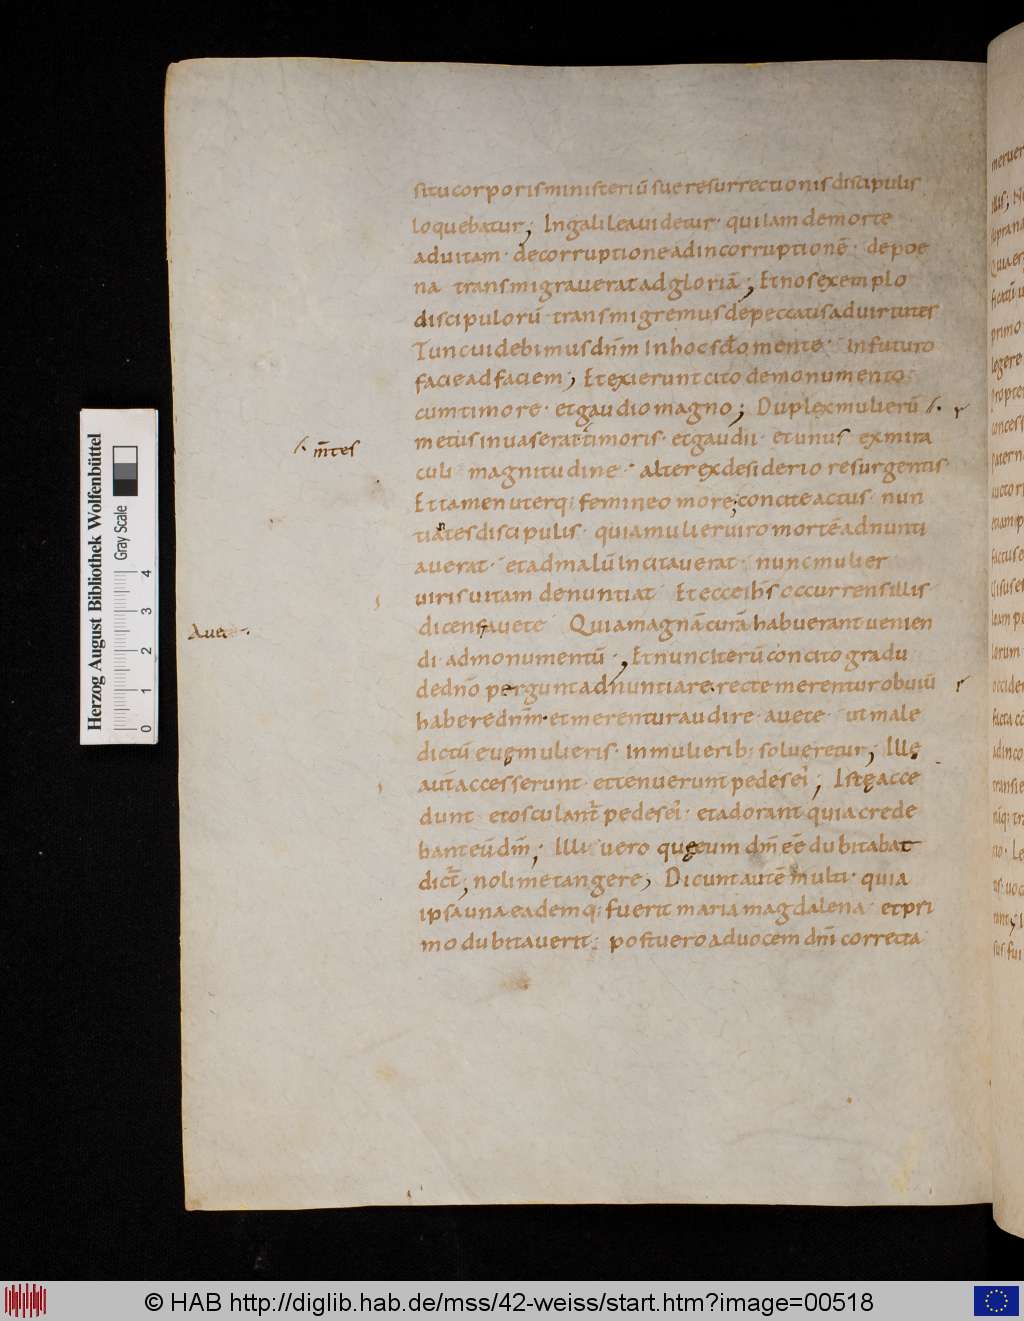 situ corporis ministeriū sue resurrectionis discipulis
loquebatur; In galilea uidetur· qui iam de morte
ad uitam· de corruptione ad incorruptionē· de poe
na transmigrauerat ad gloriā; Et nos exemplo
discipulorū transmigremus de peccatis ad uirtutes
Tunc uidebimus dn̄m In hoc sc̄lo mente· in futuro
facie ad faciem; Et exierunt cito de monumento
cum timore· et gaudio magno; Duplex mulierū
m̄tes
metus inuaserat timoris· et gaudii· et unus ex mira
culi magnitudine· alter ex desiderio resurgentis
Et tamen uterq; femineo more; concite actus· nun
tiates discipulis· quia mulier uiro mortē adnunti
auerat· et ad malū Incitauerat· nunc mulier
uiris uitam denuntiat Et ecce ih̄s occurrens illis
Aue
dicens auete Quia magnā curā habuerant uenien
di· ad monumentū·, Et nunc Iterū concito gradu
de dn̄o pergunt adnuntiare· recte merentur obuiū
habere dn̄m· et merentur audire· auete· ut male
dictū euę mulieris· In mulierib; solueretur; Illę
aut̄ accesserunt· et tenuerunt pedes ei'; Istę acce
dunt et osculant̄ pedes ei'· et adorant· quia crede
bant eū dm̄; Illi uero quę eum dm̄ eē dubitabat
dict̄; noli me tangere; Dicunt autē multi· quia
ipsa una eademq; fuerit maria magdalena· et pri
mo dubitauerit; post uero ad uocem dm̄i correcta
Herzog August Bibliothek Wolfenbüttel
Gray Scale
0 1 2 3 4
© HAB http://diglib.hab.de/mss/42-weiss/start.htm?image=00518